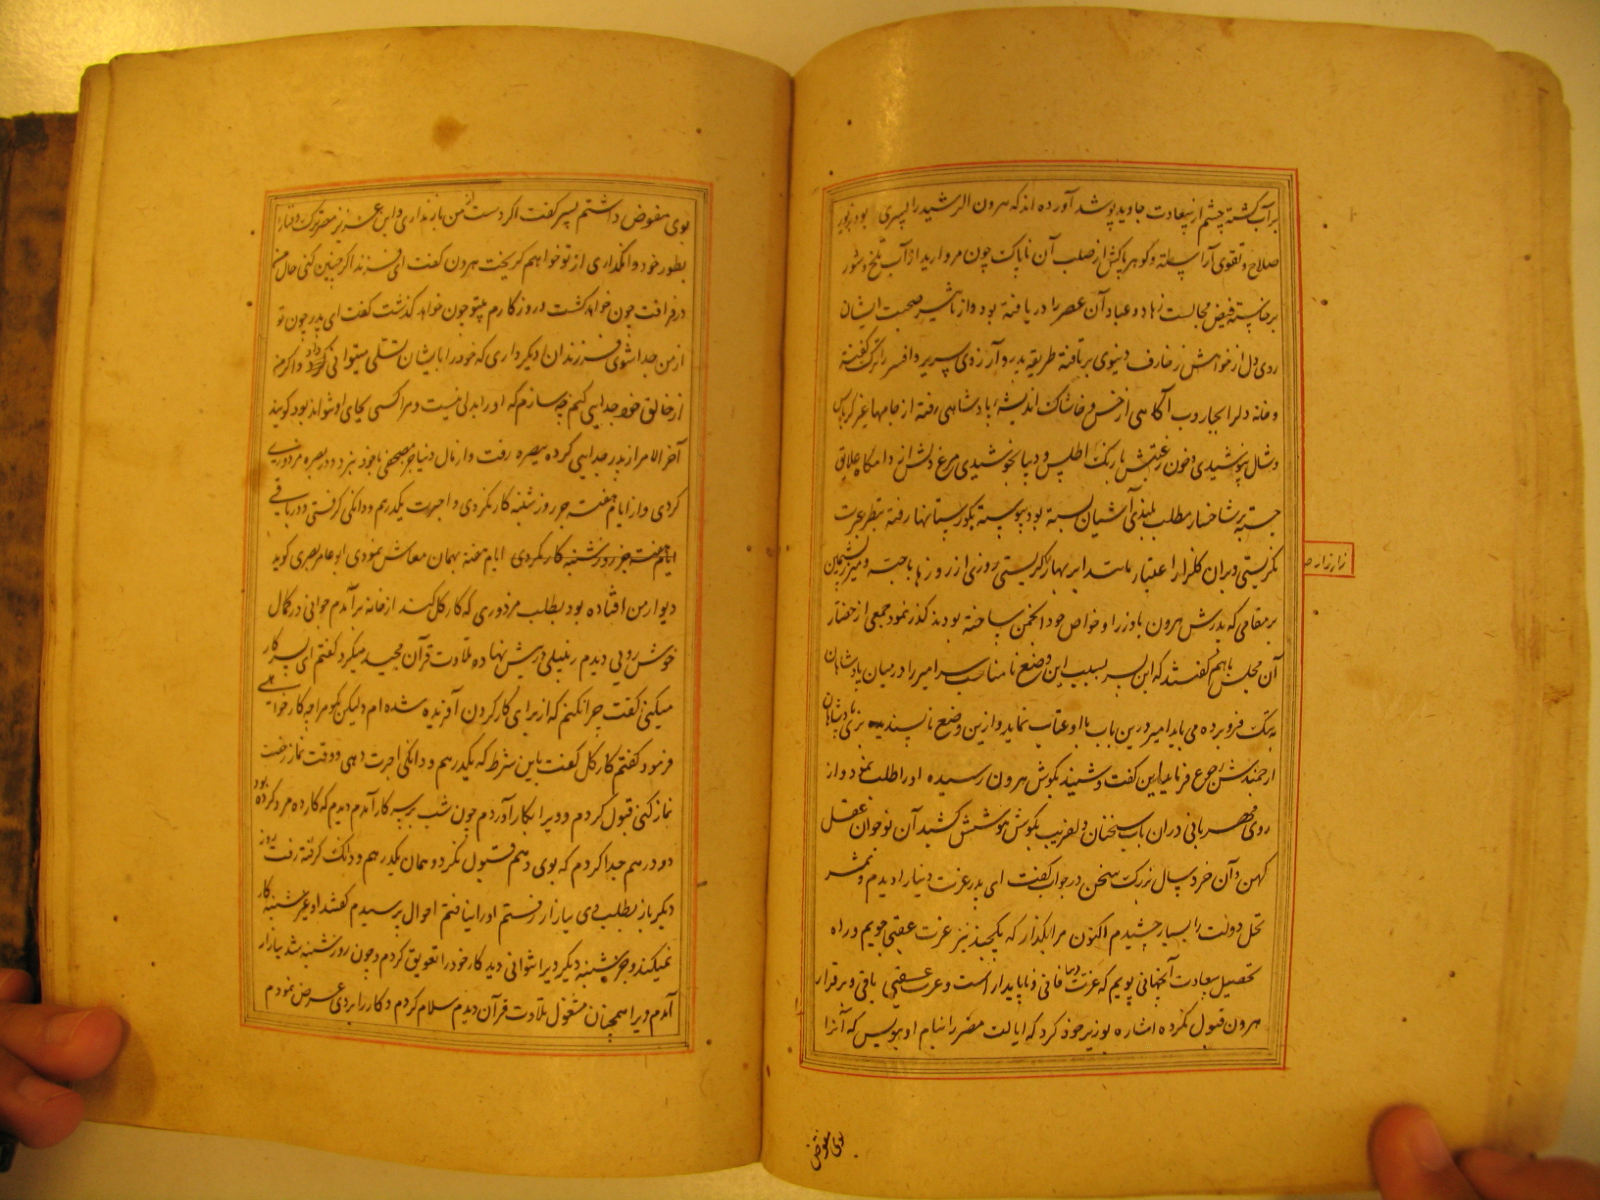 بر آب گشته چشم از سعادت جاوید پوشد آورده اند که هرون الرشید را پسری بود بزیور
صلاح و تقوی آراسته و گوهر پاکش از صلب آن ناپاک چون مروارید از آب تلخ و شور
برخاسته فیض مجالست زهاد و عباد آن عصر را دریافته بود و از تاثیر صحبت ایشان
روی دل از خواهش زخارف دنیوی بر تافته طریقه پدر و آرزوی سریر و افسر را ترک گفته
و خانه دل را بجاروب آگاهی از خس و خاشاک اندیشه پادشاهی رفته از جامها غیر کرباس
و شال نپوشیدی و خون رغبتش با رنگ اطلس و دیبا نجوشیدی مرغ دلش از دامگاه علایق
جسته بر شاخسار مطلب بلندی آشیان بسته بود پیوسته بگورستانها رفته بنظر عبرت
نگریستی و بران گلزار اعتبار مانند ابر بهار گریستی روزی از روزها با جبه و میزر پشمین
بر مقامی که پدرش هرون با وزرا و خواص خود انجمن ساخته بودند گذر نمود جمعی از حضار
آن مجلس باهم گفتند که این پسر بسبب این وضع نامناسب سر امیر را در میان پادشاهان
به ننگ فرو برده می باید امیر درین باب با او عتاب نماید و ازین وضع ناپسندیده بزی پادشاهان
ارجمندش رجوع فرماید این گفت و شنید بگوش هرون رسیده او را طلب نمود و از
روی مهربانی دران باب سخنان دلفریب بگوش هوشش کشید آن نوجوان عقل
کهن و آن خردسال بزرگ سخن در جواب گفت ای پدر عزت دنیا را دیدم و ثمر
نخل دولت را بسیار چشیدم اکنون مرا بگذار که یکچند نیز عزت عقبی جویم و راه
تحصیل سعادت آنجهانی پویم که عزت دنیا فانی و ناپایدار است و عزت عقبی باقی و برقرار
هرون قبول نکرده اشاره بوزیر خود کرد که ایالت مصر را بنام او بنویس که آنرا
بوی مفوض
بوی مفوض داشتم پسر گفت اگر دست از من باز نداری و این عزیز مصر
بطور خود وانگذاری از تو خواهم گریخت هرون گفت ای فرزند اگر چنین کنی حال من
در فراقت چون خواهد گشت و روزگارم بیتو چون خواهد گذشت گفت ای پدر چون تو
از من جدا شوی فرزندان دیگر داری که خود را بایشان تسلی میتوانی داد و اگر من
از خالق خود جدایی کنم چه سازم که او را بدلی نیست و مرا کسی بجای او نتواند بود گویند
آخر الامر از پدر جدایی کرده ببصره رفت و از مال دنیا جز مصحفی باخود نبرد و در بصره مزدوری
کردی و از ایام هفت جز روز شنبه کار نکردی و اجرت یکدرهم و دانکی گرفتی و در باقی
ایام هفته جز روز شنبه کار نکردی ایام هفته بهمان معاش نمودی ابو عامر بصری گوید
دیوار من افتاده بود بطلب مزدوری که کار گل کند از خانه بر آمدم جوانی در کمال
خوش رویی دیدم زنبیلی در پیش نهاده تلاوت قرآن مجید میکرد گفتم ای پسر کار
میکنی گفت چرا نکنم که از برای کار کردن آفریده شده ام و لیکن بگو مرا چه کار خواهی
فرمود گفتم کار گل گفت باین شرط که یکدرهم و دانکی اجرت دهی و وقت نماز رخصت
نماز کنی قبول کردم و ویرا بکار آوردم چون شب بر سر کار آمدم دیدم که کار ده مرد کرده بود
دو درهم جدا کردم که بوی دهم قبول نکرد و همان یکدرهم و دانک گرفته رفت روز
دیگر باز بطلب وی ببازار رفتم او را نیافتم احوال پرسیدم گفتند او غیر شنبه کار
نمیکند و جز شنبه دیگر ویرا نتوانی دید کار خود را تعویق کردم و چون روز شنبه شد ببازار
آمدم ویرا همچنان مشغول تلاوت قرآن دیدم سلام کردم و کار را بر وی عرض نمودم